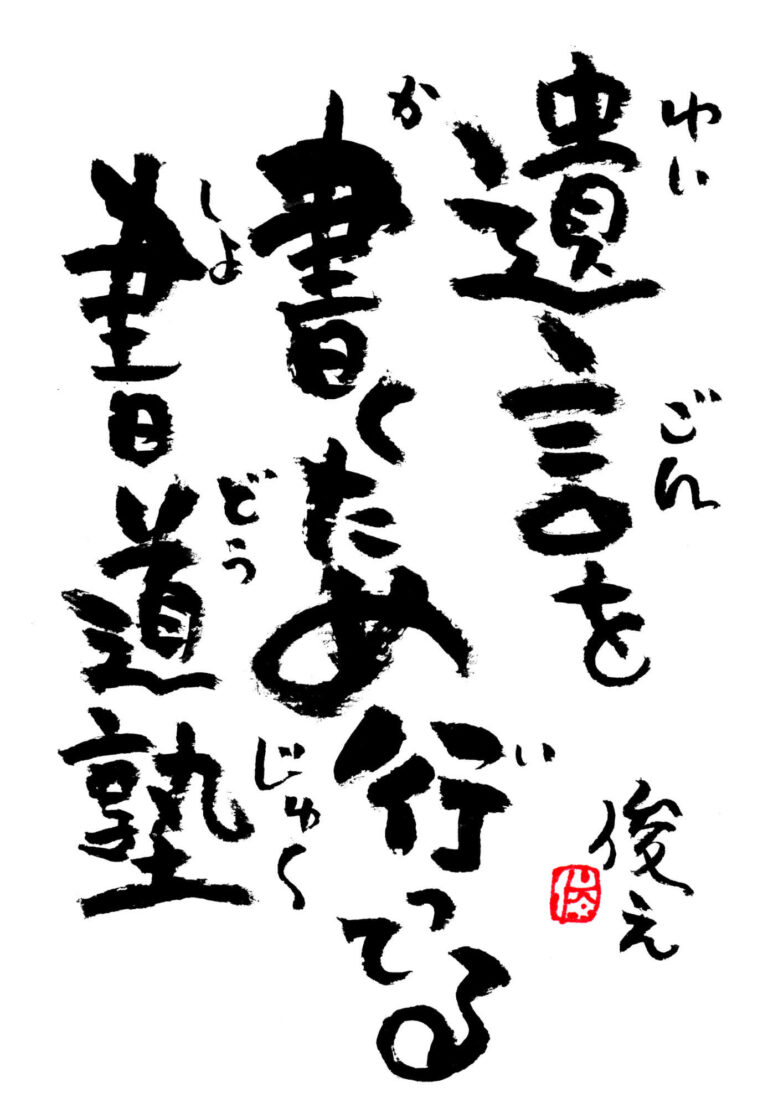 遺言を
ゆいごん
書くため行ってる
か
い
書道塾
しょ
どう
じゅく
俊え
俊